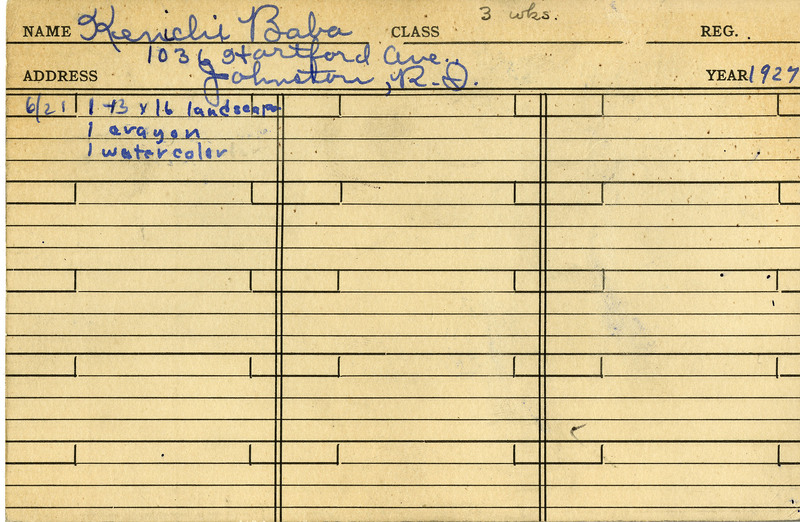 3 wks.
NAME Kenichi Baba CLASS REG.
1036 Hartford Ave.,
ADDRESS Johnston, R.I. YEAR 1927
6/21 1 13 x 16 landscape
1 crayon
1 watercolor